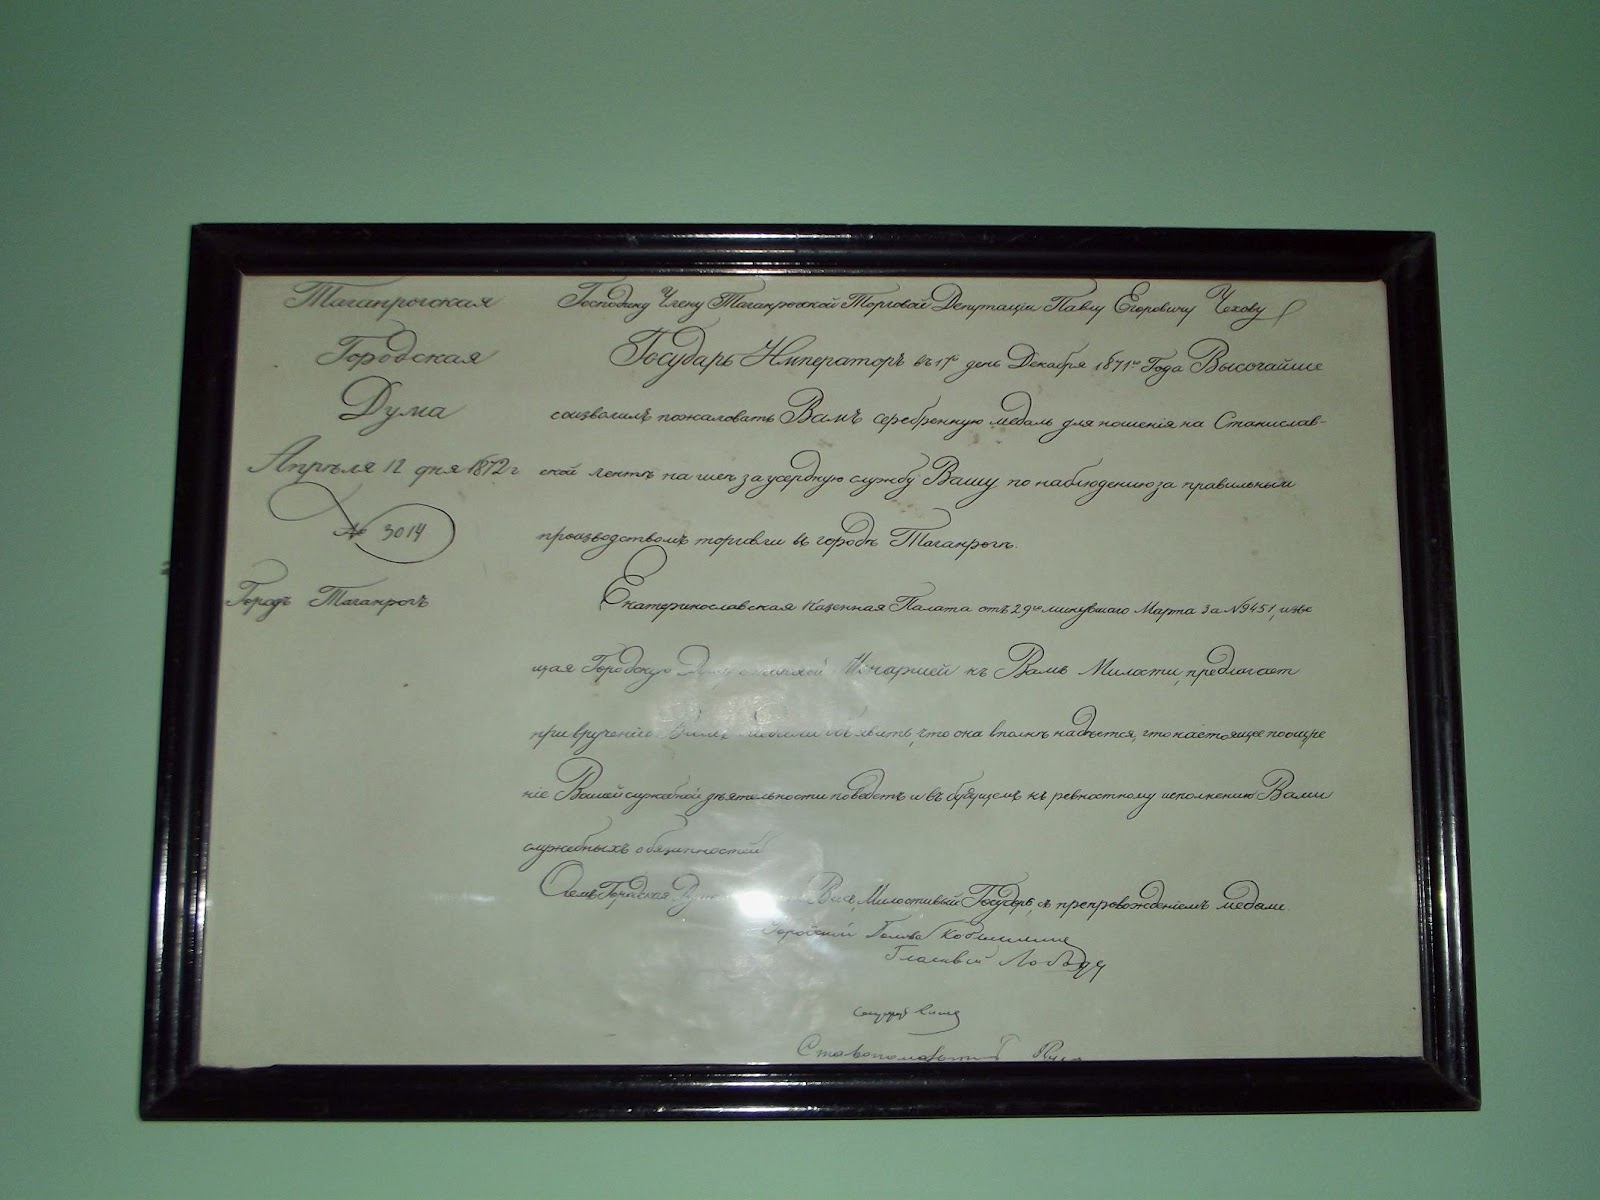 Таганрогская
Городская
Дума
Апрѣля 12 дня 1872 г
№ 3014
Городъ Таганрогъ
Господину Члену Таганрогской Торговой Депутаціи Павлу Егоровичу Чехову
Государь Императоръ въ 17 день Декабря 1871го Года Высочайше
соизволилъ пожаловать Вамъ серебренную медаль для ношенія на Станислав-
ской лентѣ на шеѣ за усердную службу Вашу по наблюденію за правильным
производствомъ торговли въ городѣ Таганрогѣ.
Екатеринославская Казенная Палата отъ 29го минувшаго Марта за № 9451, извѣ
щая Городскую Думу о таковой Монаршей къ Вамъ Милости, предлагает
при врученіи Вамъ медали объявить, что она вполнѣ надѣется, что настоящее поощре
ніе Вашей служебной дѣятельности поведетъ и въ будущемъ къ ревностному исполненію Вами
служебныхъ обязанностей
О семъ Городская Дума Васъ, Милостивый Государь, съ препровожденіемъ медали.
Городской Голова
Гласный Лобода